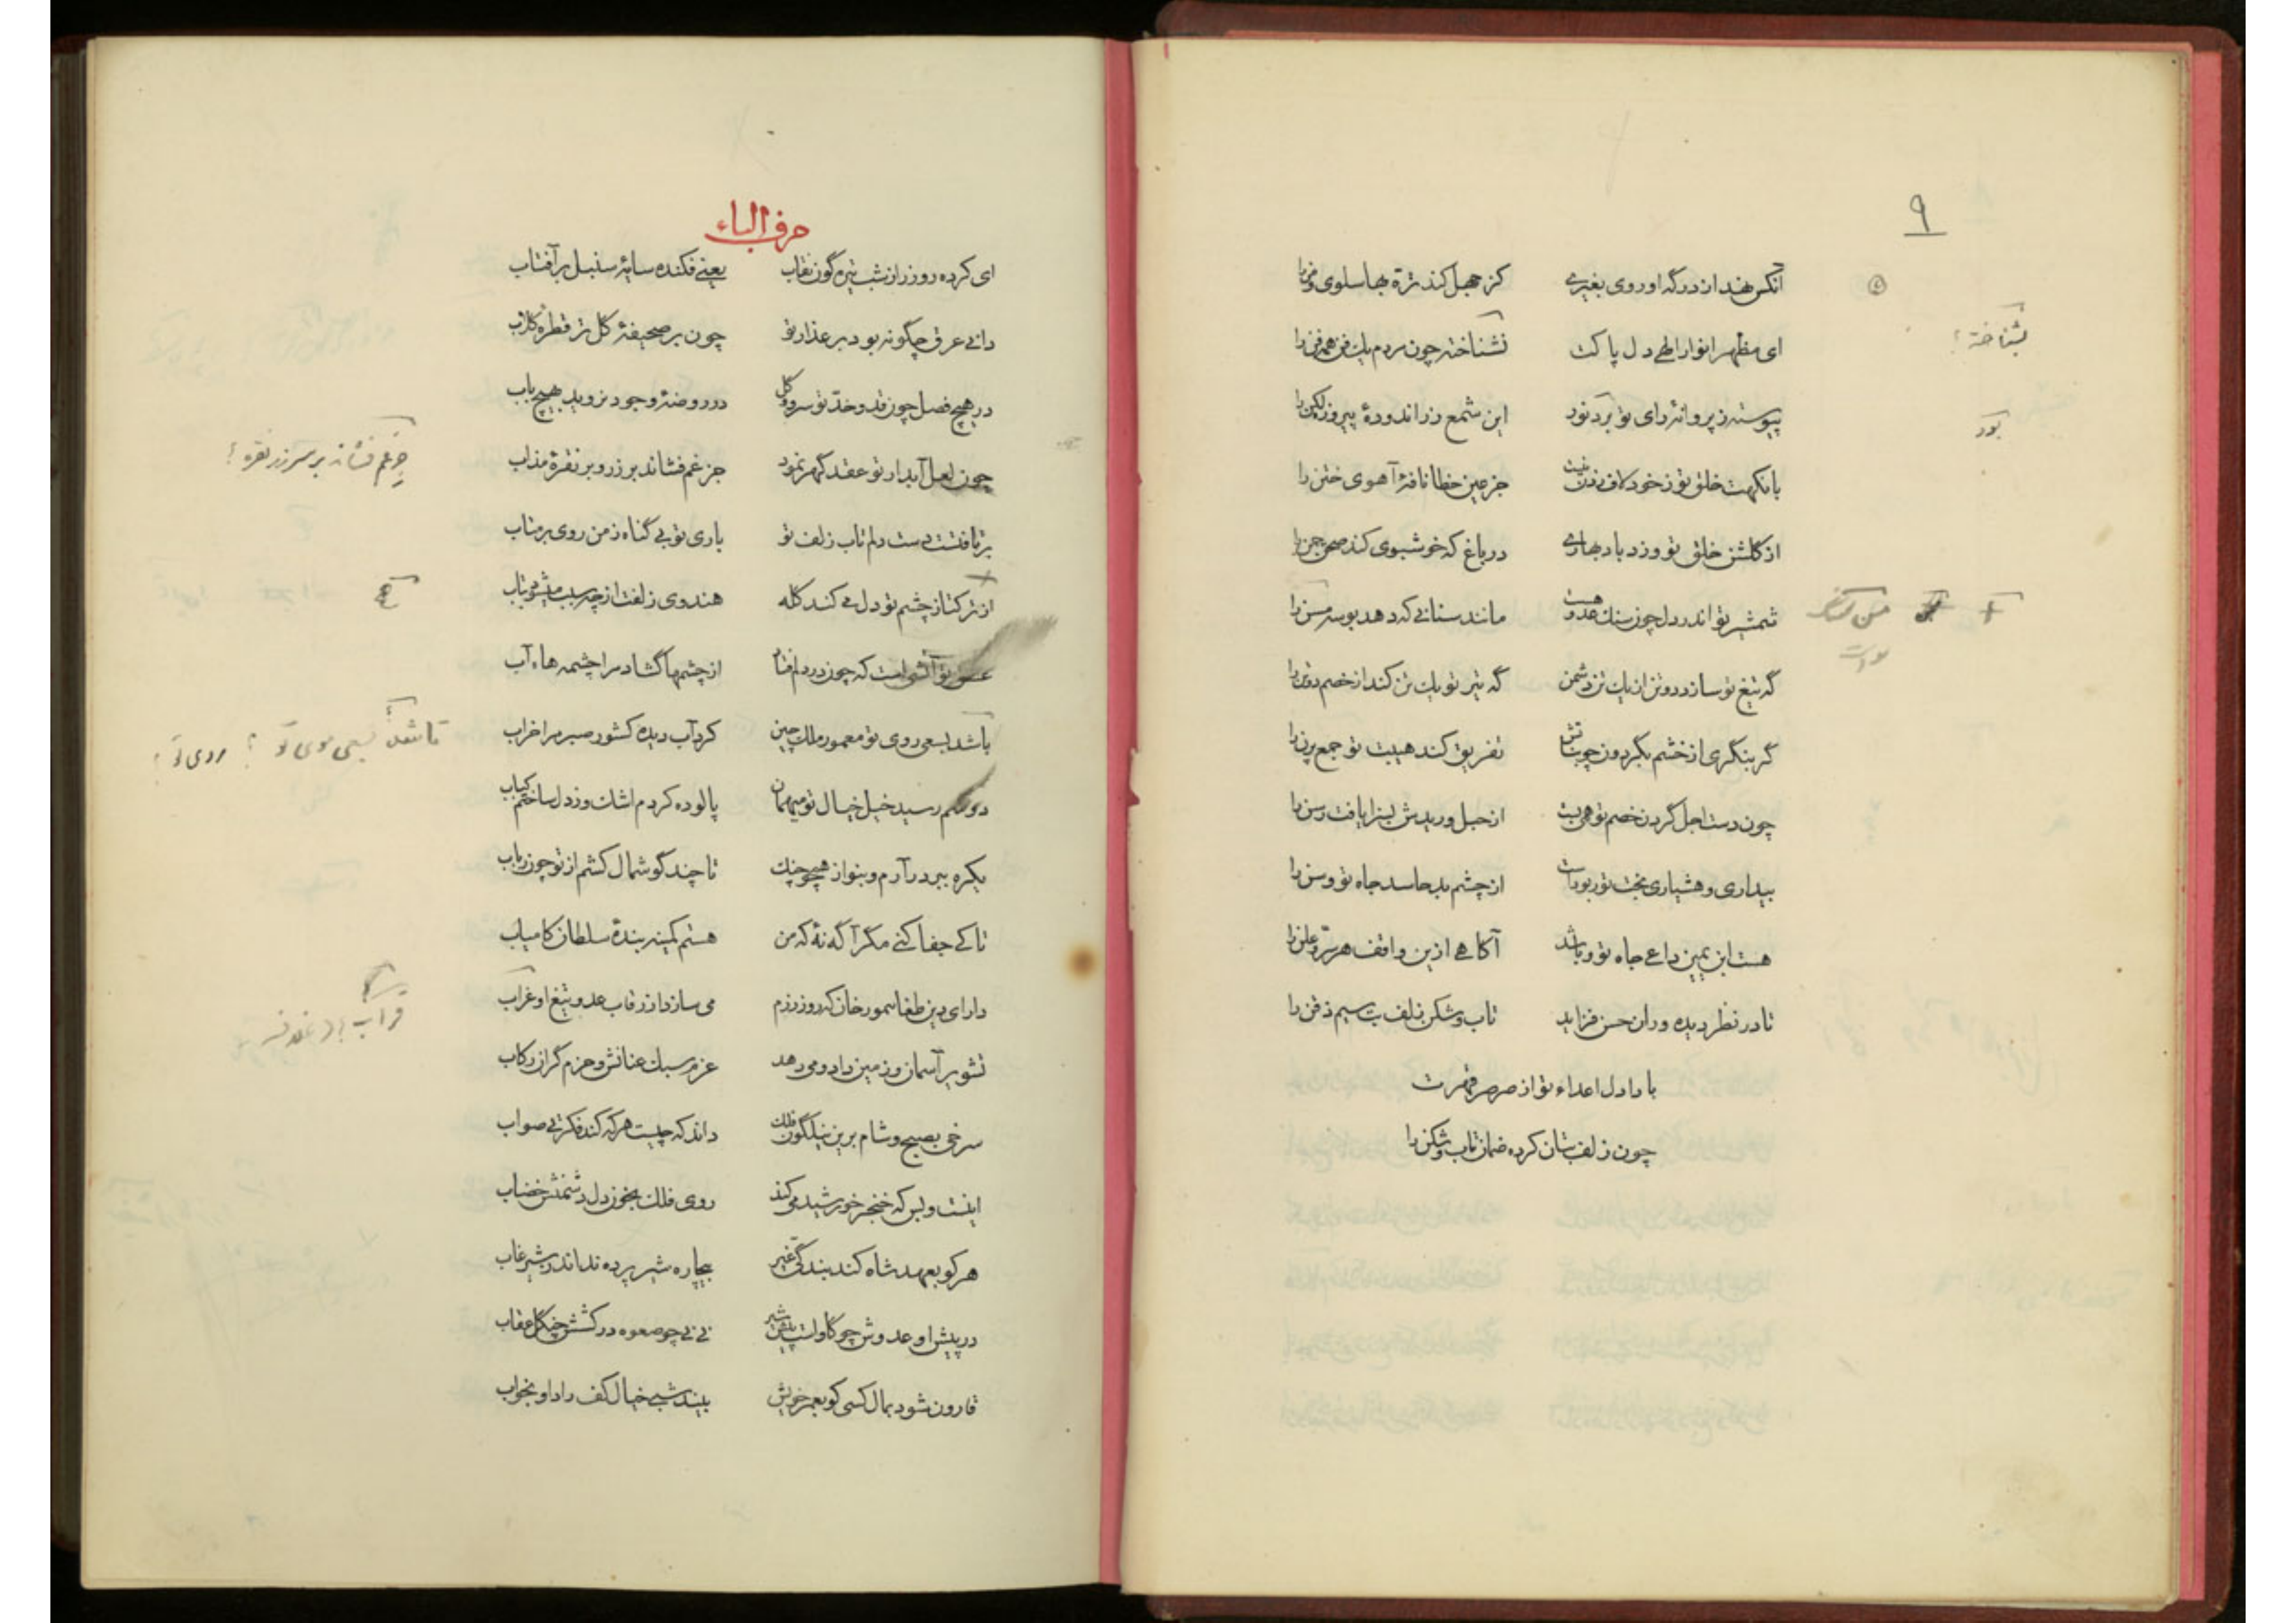 ۹
آنکس نهد از درگه او روی بغیری
کز جهل کند ترّة بها سلوی و من را
ای مظهر انوار الهی دل پاکت
نشناخته چون مردم یک فن همه فن را
بشناخته؟
پیوسته ز پروانهٔ رای تو برد نور
این شمع زراندودهٔ پیروزه لگن را
بود
با نکهت خلق تو ز خود لاف زدن نیست
جز عین خطا نافهٔ آهوی ختن را
از گلشن خلق تو وزد باد بهاری
در باغ که خوشبوی کند صحن چمن را
شمشیر تو اندر دل چون سنگ عدو هست
مانند سنانی که دهد بوسه مسن را
گه تیغ تو سازد دو تن از یک تن دشمن
گه تیر تو یک تن کند از خصم دو تن را
گر بنگری از خشم بگردون چو بنات‌ش
تفریق کند هیبت تو جمع پرن را
چون دست اجل گردن خصم تو همی بست
از حبل وریدش بسزا یافت رسن را
بیداری و هشیاری بخت تو ربودست
از چشم بد حاسد جاه تو وسن را
هست ابن یمین داعی جاه تو و باشد
آگاهی ازین واقف هر سرّ و علن را
تا در نظر دیده وران حسن فزاید
تاب و شکن زلف بت سیم ذقن را
بادا دل اعداء تو از صرصر قهرت
چون زلف بتان کرده ضمان تاب و شکن را
حرف الباء
ای کرده روز را ز شب تیره گون نقاب
یعنی فکنده سایهٔ سنبل بر آفتاب
دانی عرق چگونه بود بر عذار تو
چون بر صحیفهٔ گل تر قطرهٔ گلاب
در هیچ فصل چون قد و خدّ تو سرو و گل
در روضهٔ وجود نروید بهیچ باب
چون لعل آبدار تو عقد گهر نمود
جز غم فشاند بر زر و بر نقرهٔ مذاب
جزغم فشاند بر سر زر نقره؟
برتافتست دست دلم تاب زلف تو
باری تو بی گناه ز من روی برمتاب
از ترکتاز چشم تو دل می کند گله
هندوی زلفت از چه سبب میشود بتاب
عشق تو آتشی است که چون در دلم فتاد
از چشمها گشاد مرا چشمه هاء آب
باشد بسعی روی تو معمور ملک چین
کرد آب دیده کشور صبر مرا خراب
تا شد بسعی موی تو؟ روی تو؟
دوشم رسید خیل خیال تو میهمان
پالوده کردم اشک و ز دل ساختم کباب
یکره ببر درآرم و بنواز همچو چنگ
تا چند گوشمال کشم از تو چون رباب
تا کی جفا کنی مگر آگه نهٔ که من
هستم کمینه بندهٔ سلطان کامیاب
دارای دین طغاتیمور خان که روز رزم
می سازد از رقاب عدو تیغ او غراب
تشویر آسمان و زمین داد و می دهد
عزم سبک عنانش و حزم گران رکاب
سرخی بصبح و شام برین نیلگون فلک
داند که چیست هر که کند فکرتی صواب
اینست و بس که خنجر خورشید می کند
روی فلک بخون دل دشمنش خضاب
هر کو بعهد شاه کند بندگی غیر
بیچاره شیر پرده نداند ز شیر غاب
در پیش او عدوش چو گاوست پیش شیر
نی نی چو صعوه در کشش چنگل عقاب
قارون شود بمال کسی کو بعمر خویش
بیند شبی خیال کف راد او بخواب